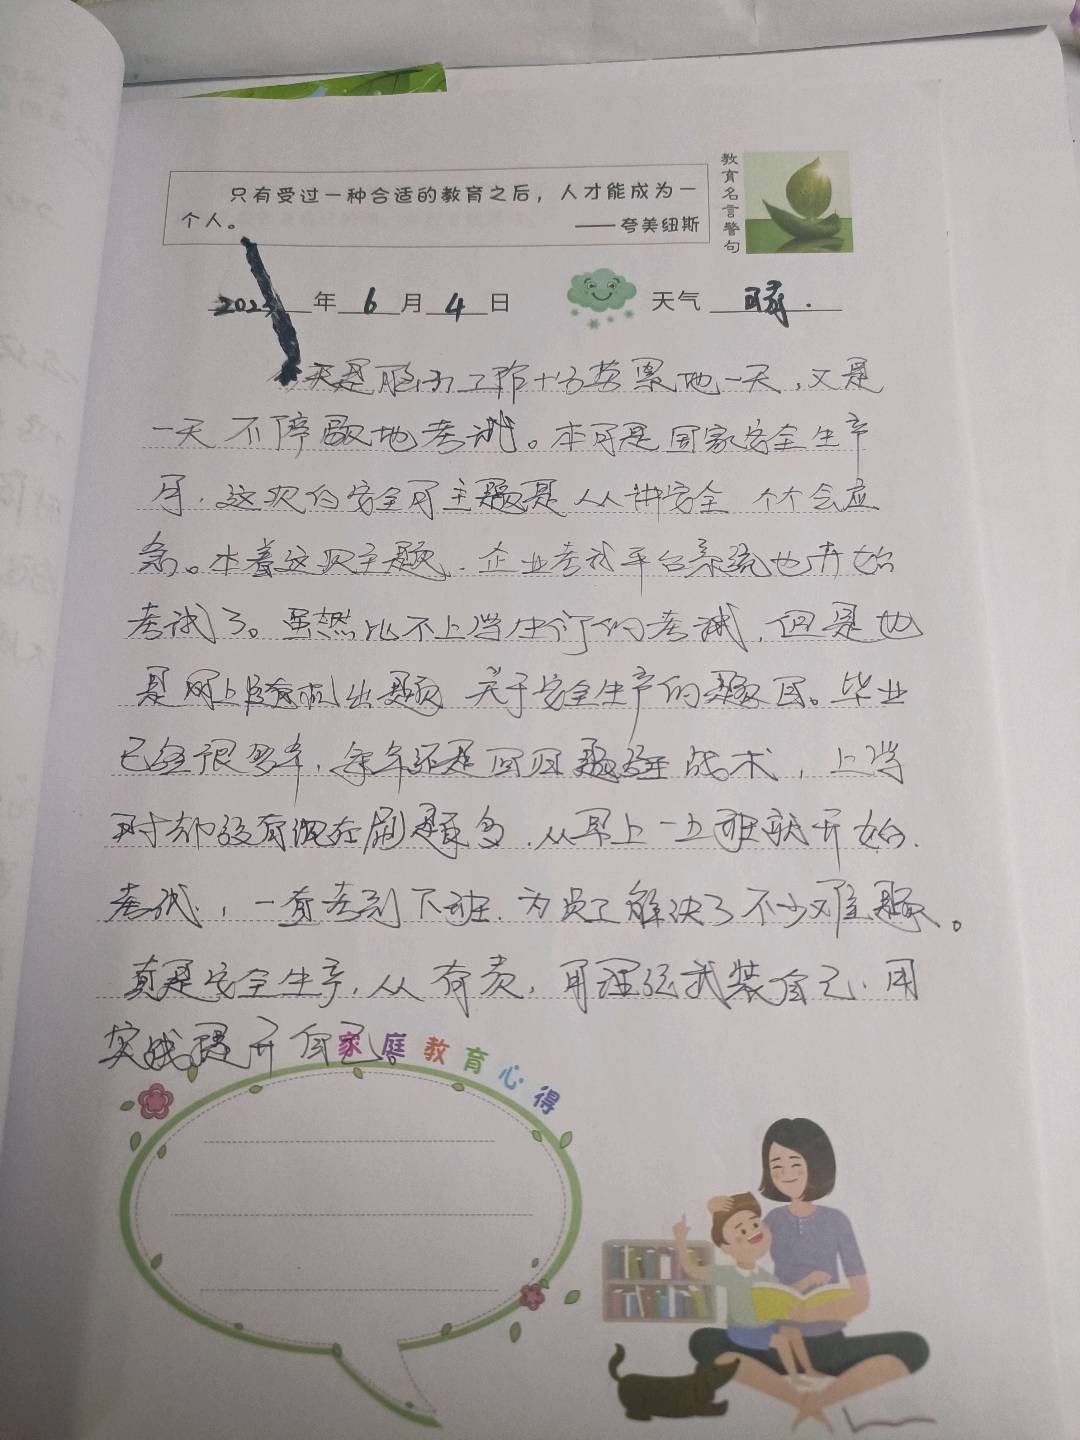 教育名言警句
只有受过一种合适的教育之后，人才能成为一
个人。
——夸美纽斯
2023年6月4日 天气
天是 工作十分 累地一天，又是
一天不停歇地考试。本月是国家安全生产
月，这次的安全月主题是人人讲安全 个个会应
急。本着这次主题，企业考试平台系统也开始
考试了。虽然比不上学生们的考试，但是也
是网上随机出题 关于安全生产的题目。毕业
已经很多年，每年还是回归题海战术，上学
时都没有现在刷题多，从早上一上班就开始
考试，一直考到下班，为员工解决了不少难题。
真是安全生产，从有责，用理论武装自己，用
实践提升自己。
家庭教育心得